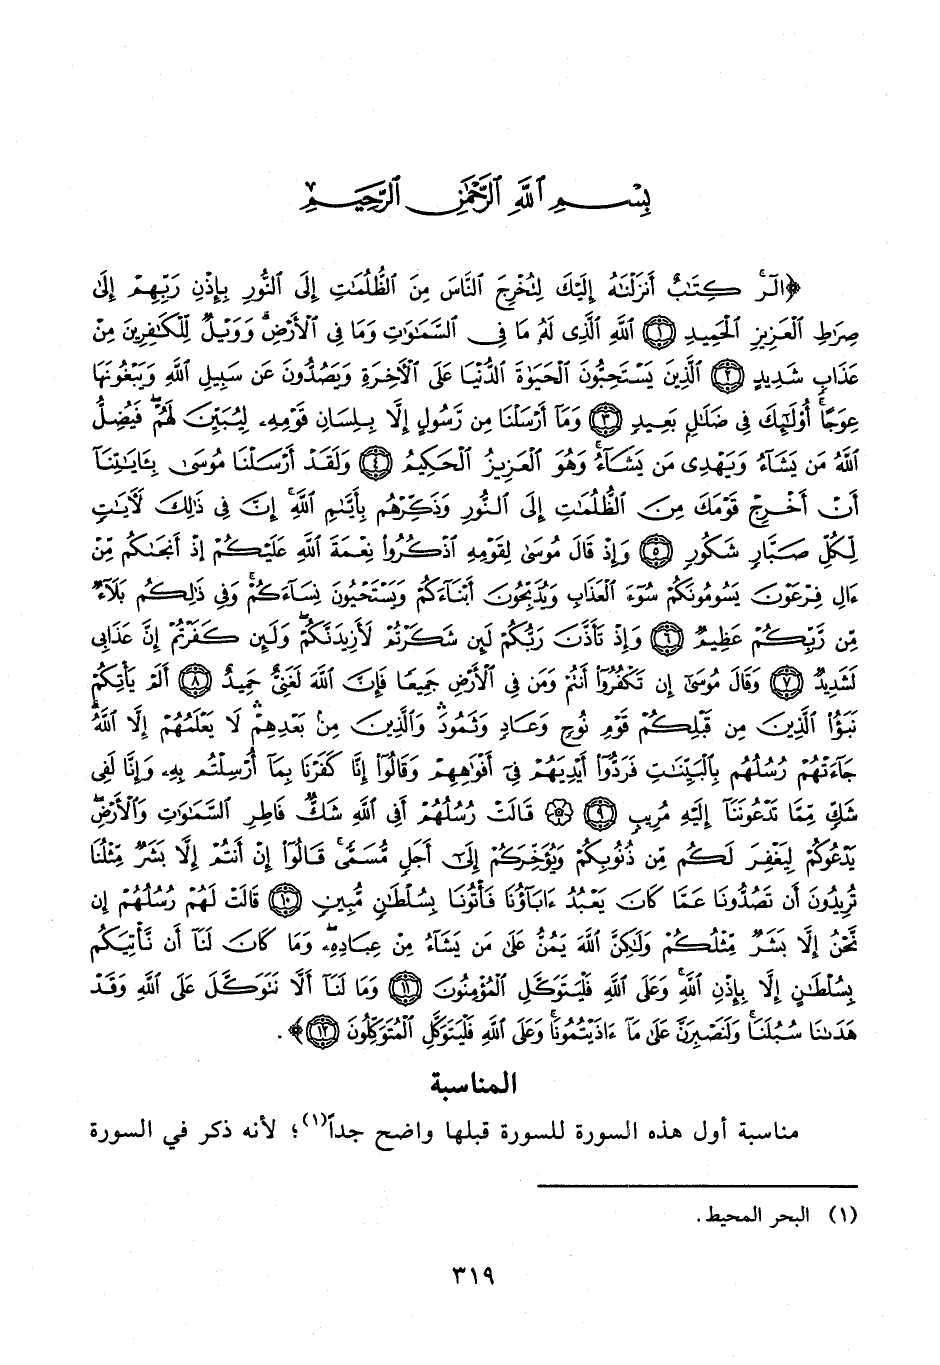 بِسْمِ ٱللَّهِ ٱلرَّحْمَٰنِ ٱلرَّحِيمِ
﴿الٓرۚ كِتَٰبٌ أَنزَلْنَٰهُ إِلَيْكَ لِتُخْرِجَ ٱلنَّاسَ مِنَ ٱلظُّلُمَٰتِ إِلَى ٱلنُّورِ بِإِذْنِ رَبِّهِمْ إِلَىٰ
صِرَٰطِ ٱلْعَزِيزِ ٱلْحَمِيدِ ۝١ ٱللَّهِ ٱلَّذِى لَهُۥ مَا فِى ٱلسَّمَٰوَٰتِ وَمَا فِى ٱلْأَرْضِۗ وَوَيْلٌ لِّلْكَٰفِرِينَ مِنْ
عَذَابٍ شَدِيدٍ ۝٢ ٱلَّذِينَ يَسْتَحِبُّونَ ٱلْحَيَوٰةَ ٱلدُّنْيَا عَلَى ٱلْأَخِرَةِ وَيَصُدُّونَ عَن سَبِيلِ ٱللَّهِ وَيَبْغُونَهَا
عِوَجًاۚ أُو۟لَٰٓئِكَ فِى ضَلَٰلٍۭ بَعِيدٍ ۝٣ وَمَآ أَرْسَلْنَا مِن رَّسُولٍ إِلَّا بِلِسَانِ قَوْمِهِۦ لِيُبَيِّنَ لَهُمْۖ فَيُضِلُّ
ٱللَّهُ مَن يَشَآءُ وَيَهْدِى مَن يَشَآءُۚ وَهُوَ ٱلْعَزِيزُ ٱلْحَكِيمُ ۝٤ وَلَقَدْ أَرْسَلْنَا مُوسَىٰ بِـَٔايَٰتِنَآ
أَنْ أَخْرِجْ قَوْمَكَ مِنَ ٱلظُّلُمَٰتِ إِلَى ٱلنُّورِ وَذَكِّرْهُم بِأَيَّىٰمِ ٱللَّهِۚ إِنَّ فِى ذَٰلِكَ لَأٓيَٰتٍ
لِّكُلِّ صَبَّارٍ شَكُورٍ ۝٥ وَإِذْ قَالَ مُوسَىٰ لِقَوْمِهِ ٱذْكُرُوا۟ نِعْمَةَ ٱللَّهِ عَلَيْكُمْ إِذْ أَنجَىٰكُم مِّنْ
ءَالِ فِرْعَوْنَ يَسُومُونَكُمْ سُوٓءَ ٱلْعَذَابِ وَيُذَبِّحُونَ أَبْنَآءَكُمْ وَيَسْتَحْيُونَ نِسَآءَكُمْۚ وَفِى ذَٰلِكُم بَلَآءٌ
مِّن رَّبِّكُمْ عَظِيمٌ ۝٦ وَإِذْ تَأَذَّنَ رَبُّكُمْ لَئِن شَكَرْتُمْ لَأَزِيدَنَّكُمْۖ وَلَئِن كَفَرْتُمْ إِنَّ عَذَابِى
لَشَدِيدٌ ۝٧ وَقَالَ مُوسَىٰٓ إِن تَكْفُرُوٓا۟ أَنتُمْ وَمَن فِى ٱلْأَرْضِ جَمِيعًا فَإِنَّ ٱللَّهَ لَغَنِىٌّ حَمِيدٌ ۝٨ أَلَمْ يَأْتِكُمْ
نَبَؤُا۟ ٱلَّذِينَ مِن قَبْلِكُمْ قَوْمِ نُوحٍ وَعَادٍ وَثَمُودَۛ وَٱلَّذِينَ مِنۢ بَعْدِهِمْۛ لَا يَعْلَمُهُمْ إِلَّا ٱللَّهُۚ
جَآءَتْهُمْ رُسُلُهُم بِٱلْبَيِّنَٰتِ فَرَدُّوٓا۟ أَيْدِيَهُمْ فِىٓ أَفْوَٰهِهِمْ وَقَالُوٓا۟ إِنَّا كَفَرْنَا بِمَآ أُرْسِلْتُم بِهِۦ وَإِنَّا لَفِى
شَكٍّ مِّمَّا تَدْعُونَنَآ إِلَيْهِ مُرِيبٍ ۝٩ ۞ قَالَتْ رُسُلُهُمْ أَفِى ٱللَّهِ شَكٌّ فَاطِرِ ٱلسَّمَٰوَٰتِ وَٱلْأَرْضِۖ
يَدْعُوكُمْ لِيَغْفِرَ لَكُم مِّن ذُنُوبِكُمْ وَيُؤَخِّرَكُمْ إِلَىٰٓ أَجَلٍ مُّسَمًّىۚ قَالُوٓا۟ إِنْ أَنتُمْ إِلَّا بَشَرٌ مِّثْلُنَا
تُرِيدُونَ أَن تَصُدُّونَا عَمَّا كَانَ يَعْبُدُ ءَابَآؤُنَا فَأْتُونَا بِسُلْطَٰنٍ مُّبِينٍ ۝١٠ قَالَتْ لَهُمْ رُسُلُهُمْ إِن
نَّحْنُ إِلَّا بَشَرٌ مِّثْلُكُمْ وَلَٰكِنَّ ٱللَّهَ يَمُنُّ عَلَىٰ مَن يَشَآءُ مِنْ عِبَادِهِۦۖ وَمَا كَانَ لَنَآ أَن نَّأْتِيَكُم
بِسُلْطَٰنٍ إِلَّا بِإِذْنِ ٱللَّهِۚ وَعَلَى ٱللَّهِ فَلْيَتَوَكَّلِ ٱلْمُؤْمِنُونَ ۝١١ وَمَا لَنَآ أَلَّا نَتَوَكَّلَ عَلَى ٱللَّهِ وَقَدْ
هَدَىٰنَا سُبُلَنَاۚ وَلَنَصْبِرَنَّ عَلَىٰ مَآ ءَاذَيْتُمُونَاۚ وَعَلَى ٱللَّهِ فَلْيَتَوَكَّلِ ٱلْمُتَوَكِّلُونَ ۝١٢﴾.
المناسبة
مناسبة أول هذه السورة للسورة قبلها واضح جداً(١)؛ لأنه ذكر في السورة
(١) البحر المحيط.
٣١٩